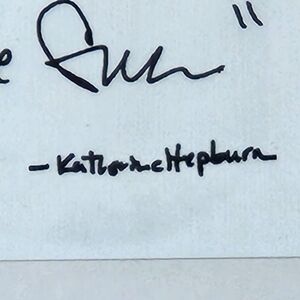 e Fun"
- Katharine Hepburn